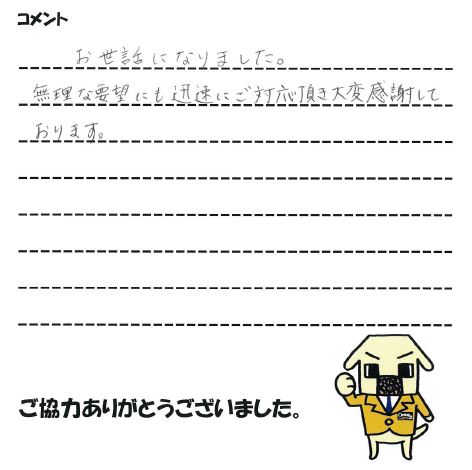 コメント
お世話になりました。
無理な要望にも迅速にご対応頂き大変感謝して
おります。
ご協力ありがとうございました。